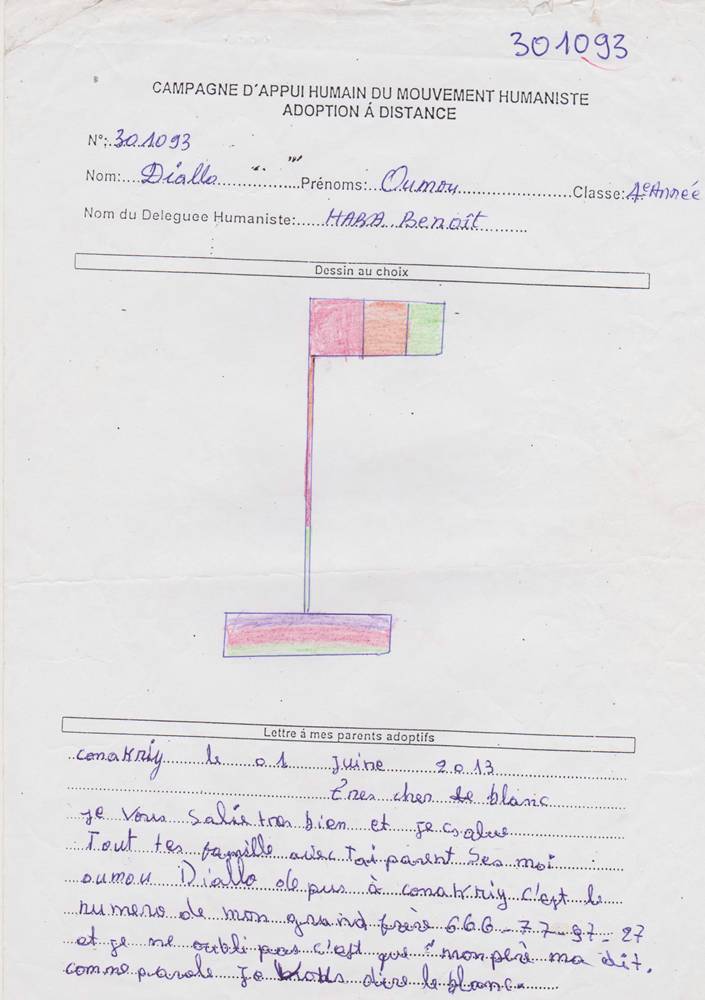 301093
CAMPAGNE D'APPUI HUMAIN DU MOUVEMENT HUMANISTE
ADOPTION Á DISTANCE
N°: 301093
Nom: Diallo Prénoms: Oumou Classe: 4e Année
Nom du Deleguee Humaniste: HABA Benoît
Dessin au choix
Lettre á mes parents adoptifs
conakriy le 01 juine 2013
Tres cher le blanc
je vous salie tres bien et je salue
Tout tes famille avec Tai parent Ses moi
oumou Diallo depus à conakriy c'est le
numero de mon grand frère 666-77-97-27
et je ne oubli pas c'est que monpère ma dit.
comme parole Je vous dire le blanc.